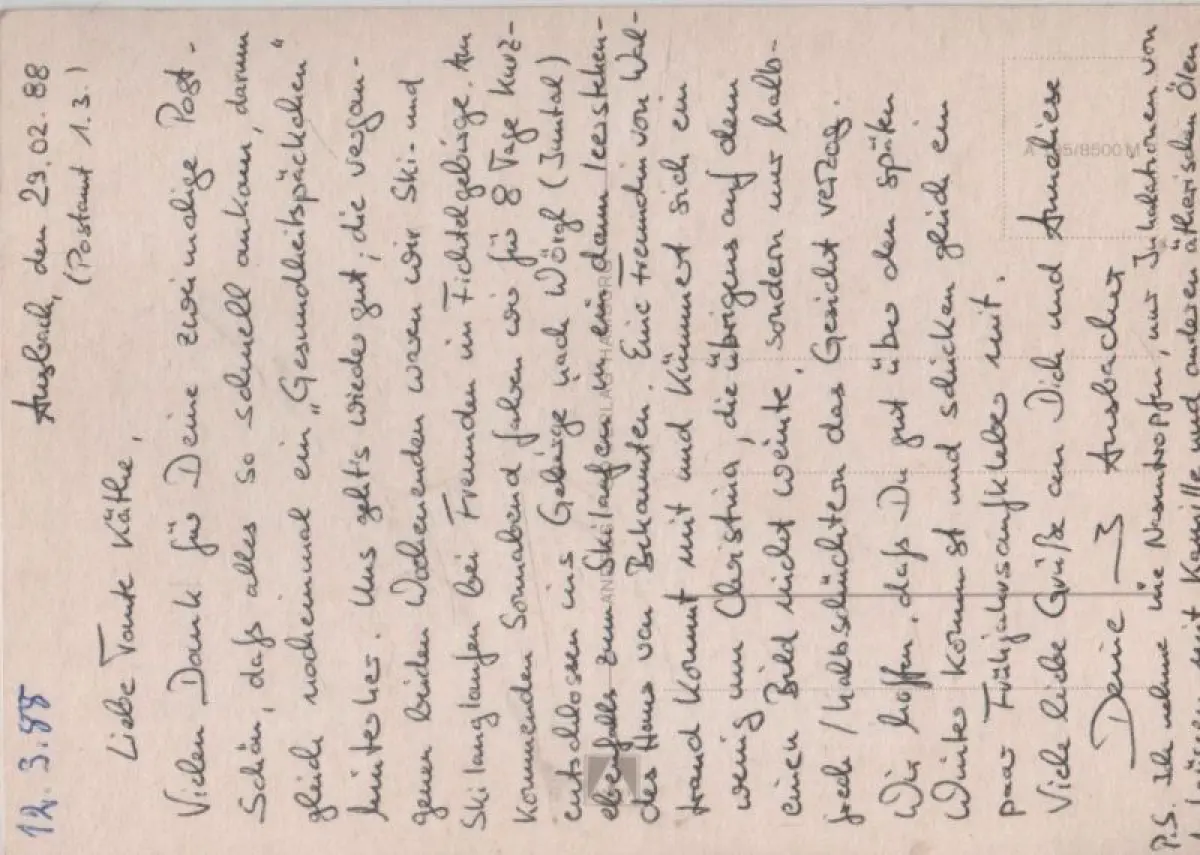 12. 3. 88
Ansbach, den 29.02.88
(Postamt 1.3.)
Liebe Tante Käthe,
Vielen Dank für Deine zweimalige Post.
Schön, daß alles so schnell ankam, darum
gleich nocheinmal ein „Gesundheitspäckchen"
hinterher. Uns geht's wieder gut; die vergan-
genen beiden Wochenenden waren wir Ski- und
Skilanglaufen bei Freunden im Fichtelgebirge. Am
kommenden Sonnabend fahren wir für 8 Tage kurz-
entschlossen ins Gebirge nach Wörgl (Inntal)
ebenfalls zum Skilaufen in ein dann leerstehen-
des Haus von Bekannten. Eine Freundin von Wal-
traud kommt mit und kümmert sich ein
wenig um Christina, die übrigens auf dem
einen Bild nicht weinte, sondern nur halb-
frech/halbschüchtern das Gesicht verzog.
Wir hoffen, daß Du gut über den späten
Winter kommst und schicken gleich ein
paar Frühjahrsaufkleber mit.
Viele liebe Grüße an Dich und Anneliese
Deine 3 Ansbacher
P.S. Ich nehme nie Nasentropfen, nur Inhalationen von
mit Kamille und anderen ätherischen Ölen
A 195/8500 M